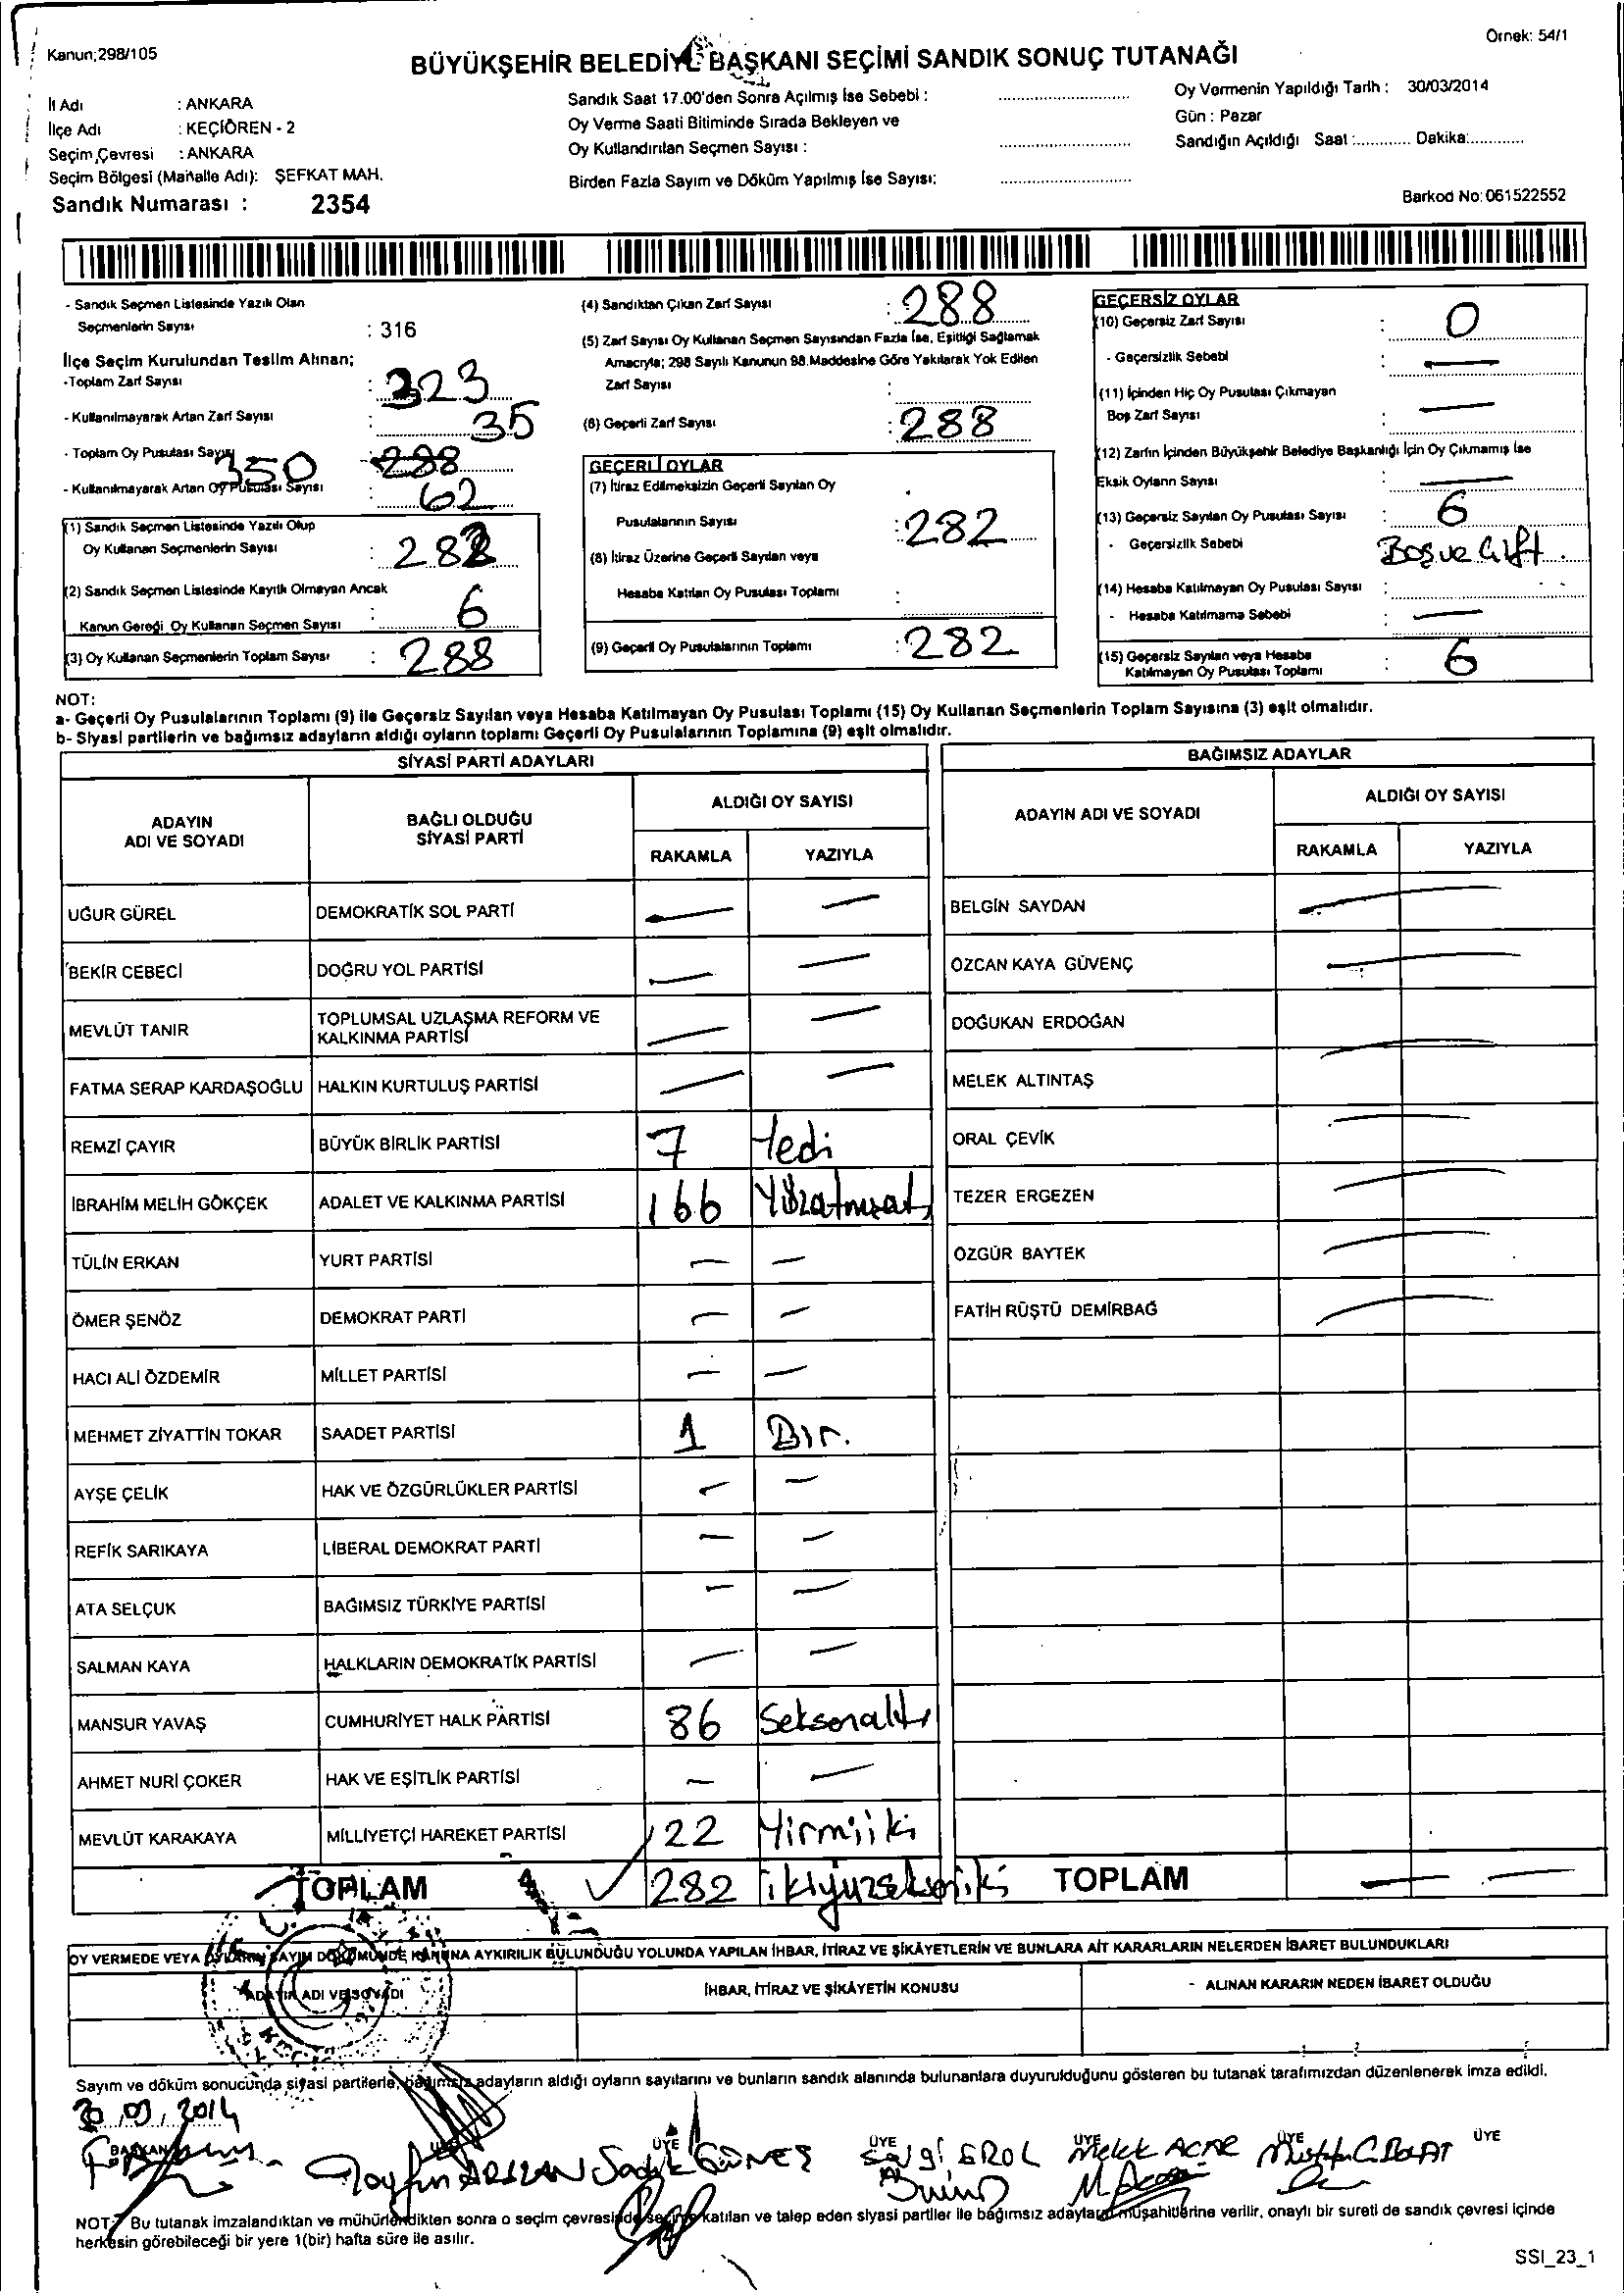 Kanun;298/105
Örnek: 54/1
BÜYÜKŞEHİR BELEDİYE BAŞKANI SEÇİMİ SANDIK SONUÇ TUTANAĞI
İl Adı : ANKARA
İlçe Adı : KEÇİÖREN - 2
Seçim Çevresi : ANKARA
Seçim Bölgesi (Mahalle Adı): ŞEFKAT MAH.
Sandık Numarası : 2354
Sandık Saat 17.00'den Sonra Açılmış İse Sebebi :
Oy Verme Saati Bitiminde Sırada Bekleyen ve
Oy Kullandırılan Seçmen Sayısı :
Birden Fazla Sayım ve Döküm Yapılmış İse Sayısı:
Oy Vermenin Yapıldığı Tarih : 30/03/2014
Gün : Pazar
Sandığın Açıldığı Saat :............ Dakika:............
Barkod No: 061522552
- Sandık Seçmen Listesinde Yazılı Olan
Seçmenlerin Sayısı : 316
İlçe Seçim Kurulundan Teslim Alınan;
-Toplam Zarf Sayısı : 323
- Kullanılmayarak Artan Zarf Sayısı : 35
- Toplam Oy Pusulası Sayısı 350 288
- Kullanılmayarak Artan Oy Pusulası Sayısı : 62
(1) Sandık Seçmen Listesinde Yazılı Olup
Oy Kullanan Seçmenlerin Sayısı : 282
(2) Sandık Seçmen Listesinde Kayıtlı Olmayan Ancak
Kanun Gereği Oy Kullanan Seçmen Sayısı : 6
(3) Oy Kullanan Seçmenlerin Toplam Sayısı : 288
(4) Sandıktan Çıkan Zarf Sayısı : 288
(5) Zarf Sayısı Oy Kullanan Seçmen Sayısından Fazla İse, Eşitliği Sağlamak
Amacıyla; 298 Sayılı Kanunun 98.Maddesine Göre Yakılarak Yok Edilen
Zarf Sayısı :
(6) Geçerli Zarf Sayısı : 288
GEÇERLİ OYLAR
(7) İtiraz Edilmeksizin Geçerli Sayılan Oy
Pusulalarının Sayısı : 282
(8) İtiraz Üzerine Geçerli Sayılan veya
Hesaba Katılan Oy Pusulası Toplamı :
(9) Geçerli Oy Pusulalarının Toplamı : 282
GEÇERSİZ OYLAR
(10) Geçersiz Zarf Sayısı : 0
- Geçersizlik Sebebi : —
(11) İçinden Hiç Oy Pusulası Çıkmayan
Boş Zarf Sayısı : —
(12) Zarfın İçinden Büyükşehir Belediye Başkanlığı İçin Oy Çıkmamış İse
Eksik Oyların Sayısı : —
(13) Geçersiz Sayılan Oy Pusulası Sayısı : 6
- Geçersizlik Sebebi Boş ve Çift.
(14) Hesaba Katılmayan Oy Pusulası Sayısı :
- Hesaba Katılmama Sebebi : —
(15) Geçersiz Sayılan veya Hesaba
Katılmayan Oy Pusulası Toplamı : 6
NOT:
a- Geçerli Oy Pusulalarının Toplamı (9) ile Geçersiz Sayılan veya Hesaba Katılmayan Oy Pusulası Toplamı (15) Oy Kullanan Seçmenlerin Toplam Sayısına (3) eşit olmalıdır.
b- Siyasi partilerin ve bağımsız adayların aldığı oyların toplamı Geçerli Oy Pusulalarının Toplamına (9) eşit olmalıdır.
SİYASİ PARTİ ADAYLARI
ADAYIN ADI VE SOYADI
BAĞLI OLDUĞU SİYASİ PARTİ
ALDIĞI OY SAYISI
RAKAMLA YAZIYLA
UĞUR GÜREL DEMOKRATİK SOL PARTİ — —
BEKİR CEBECİ DOĞRU YOL PARTİSİ — —
MEVLÜT TANIR TOPLUMSAL UZLAŞMA REFORM VE KALKINMA PARTİSİ — —
FATMA SERAP KARDAŞOĞLU HALKIN KURTULUŞ PARTİSİ — —
REMZİ ÇAYIR BÜYÜK BİRLİK PARTİSİ 7 Yedi
İBRAHİM MELİH GÖKÇEK ADALET VE KALKINMA PARTİSİ 166
TÜLİN ERKAN YURT PARTİSİ — —
ÖMER ŞENÖZ DEMOKRAT PARTİ — —
HACI ALİ ÖZDEMİR MİLLET PARTİSİ — —
MEHMET ZİYATTİN TOKAR SAADET PARTİSİ 1 Bir.
AYŞE ÇELİK HAK VE ÖZGÜRLÜKLER PARTİSİ — —
REFİK SARIKAYA LİBERAL DEMOKRAT PARTİ — —
ATA SELÇUK BAĞIMSIZ TÜRKİYE PARTİSİ — —
SALMAN KAYA HALKLARIN DEMOKRATİK PARTİSİ — —
MANSUR YAVAŞ CUMHURİYET HALK PARTİSİ 86 Seksenaltı
AHMET NURİ ÇOKER HAK VE EŞİTLİK PARTİSİ — —
MEVLÜT KARAKAYA MİLLİYETÇİ HAREKET PARTİSİ 22 Yirmiiki
TOPLAM 282 ikiyüzsekseniki
BAĞIMSIZ ADAYLAR
ADAYIN ADI VE SOYADI
ALDIĞI OY SAYISI
RAKAMLA YAZIYLA
BELGİN SAYDAN —
ÖZCAN KAYA GÜVENÇ —
DOĞUKAN ERDOĞAN —
MELEK ALTINTAŞ —
ORAL ÇEVİK —
TEZER ERGEZEN —
ÖZGÜR BAYTEK —
FATİH RÜŞTÜ DEMİRBAĞ —
TOPLAM — —
OY VERMEDE VEYA OYLARIN SAYIM DÖKÜMÜNDE KANUNA AYKIRILIK BULUNDUĞU YOLUNDA YAPILAN İHBAR, İTİRAZ VE ŞİKÂYETLERİN VE BUNLARA AİT KARARLARIN NELERDEN İBARET BULUNDUKLARI
ADAYIN ADI VE SOYADI
İHBAR, İTİRAZ VE ŞİKÂYETİN KONUSU
- ALINAN KARARIN NEDEN İBARET OLDUĞU
Sayım ve döküm sonucunda siyasi partilerle, bağımsız adayların aldığı oyların sayılarını ve bunların sandık alanında bulunanlara duyurulduğunu gösteren bu tutanak tarafımızdan düzenlenerek imza edildi.
30/03/2014
BAŞKAN ÜYE ÜYE ÜYE ÜYE ÜYE ÜYE
Tayfun ARSLAN Sadık GÜNEŞ Sevgi EROL Melek ACAR
NOT: Bu tutanak imzalandıktan ve mühürlendikten sonra o seçim çevresinde seçime katılan ve talep eden siyasi partiler ile bağımsız adaylara müşahitlerine verilir, onaylı bir sureti de sandık çevresi içinde
herkesin görebileceği bir yere 1(bir) hafta süre ile asılır.
SSI_23_1